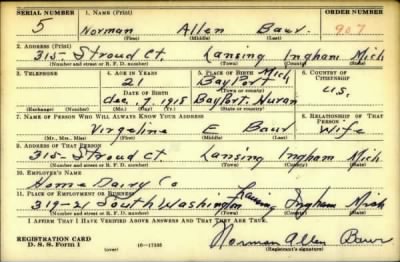 SERIAL NUMBER 1. NAME (Print) ORDER NUMBER
5 Norman Allen Baur 907
(First) (Middle) (Last)
2. ADDRESS (Print)
315- Stroud Ct. Lansing Ingham Mich
(Number and street or R. F. D. number) (Town) (County) (State)
3. TELEPHONE 4. AGE IN YEARS 5. PLACE OF BIRTH 6. COUNTRY OF CITIZENSHIP
21 Bay Port Mich
DATE OF BIRTH (Town or county)
Dec. 9, 1918 Bay Port. Huron U.S.
(Exchange) (Number) (Mo.) (Day) (Yr.) (State or country)
7. NAME OF PERSON WHO WILL ALWAYS KNOW YOUR ADDRESS 8. RELATIONSHIP OF THAT PERSON
Virgeline E Baur Wife
(Mr., Mrs., Miss) (First) (Middle) (Last)
9. ADDRESS OF THAT PERSON
315- Stroud Ct. Lansing Ingham Mich.
(Number and street or R. F. D. number) (Town) (County) (State)
10. EMPLOYER'S NAME
Home Dairy Co
11. PLACE OF EMPLOYMENT OR BUSINESS
319-21 South Washington Lansing Ingham Mich
(Number and street or R. F. D. number) (Town) (County) (State)
I AFFIRM THAT I HAVE VERIFIED ABOVE ANSWERS AND THAT THEY ARE TRUE.
REGISTRATION CARD
D. S. S. Form 1 16-17105 Norman Allen Baur
(Registrant's signature)